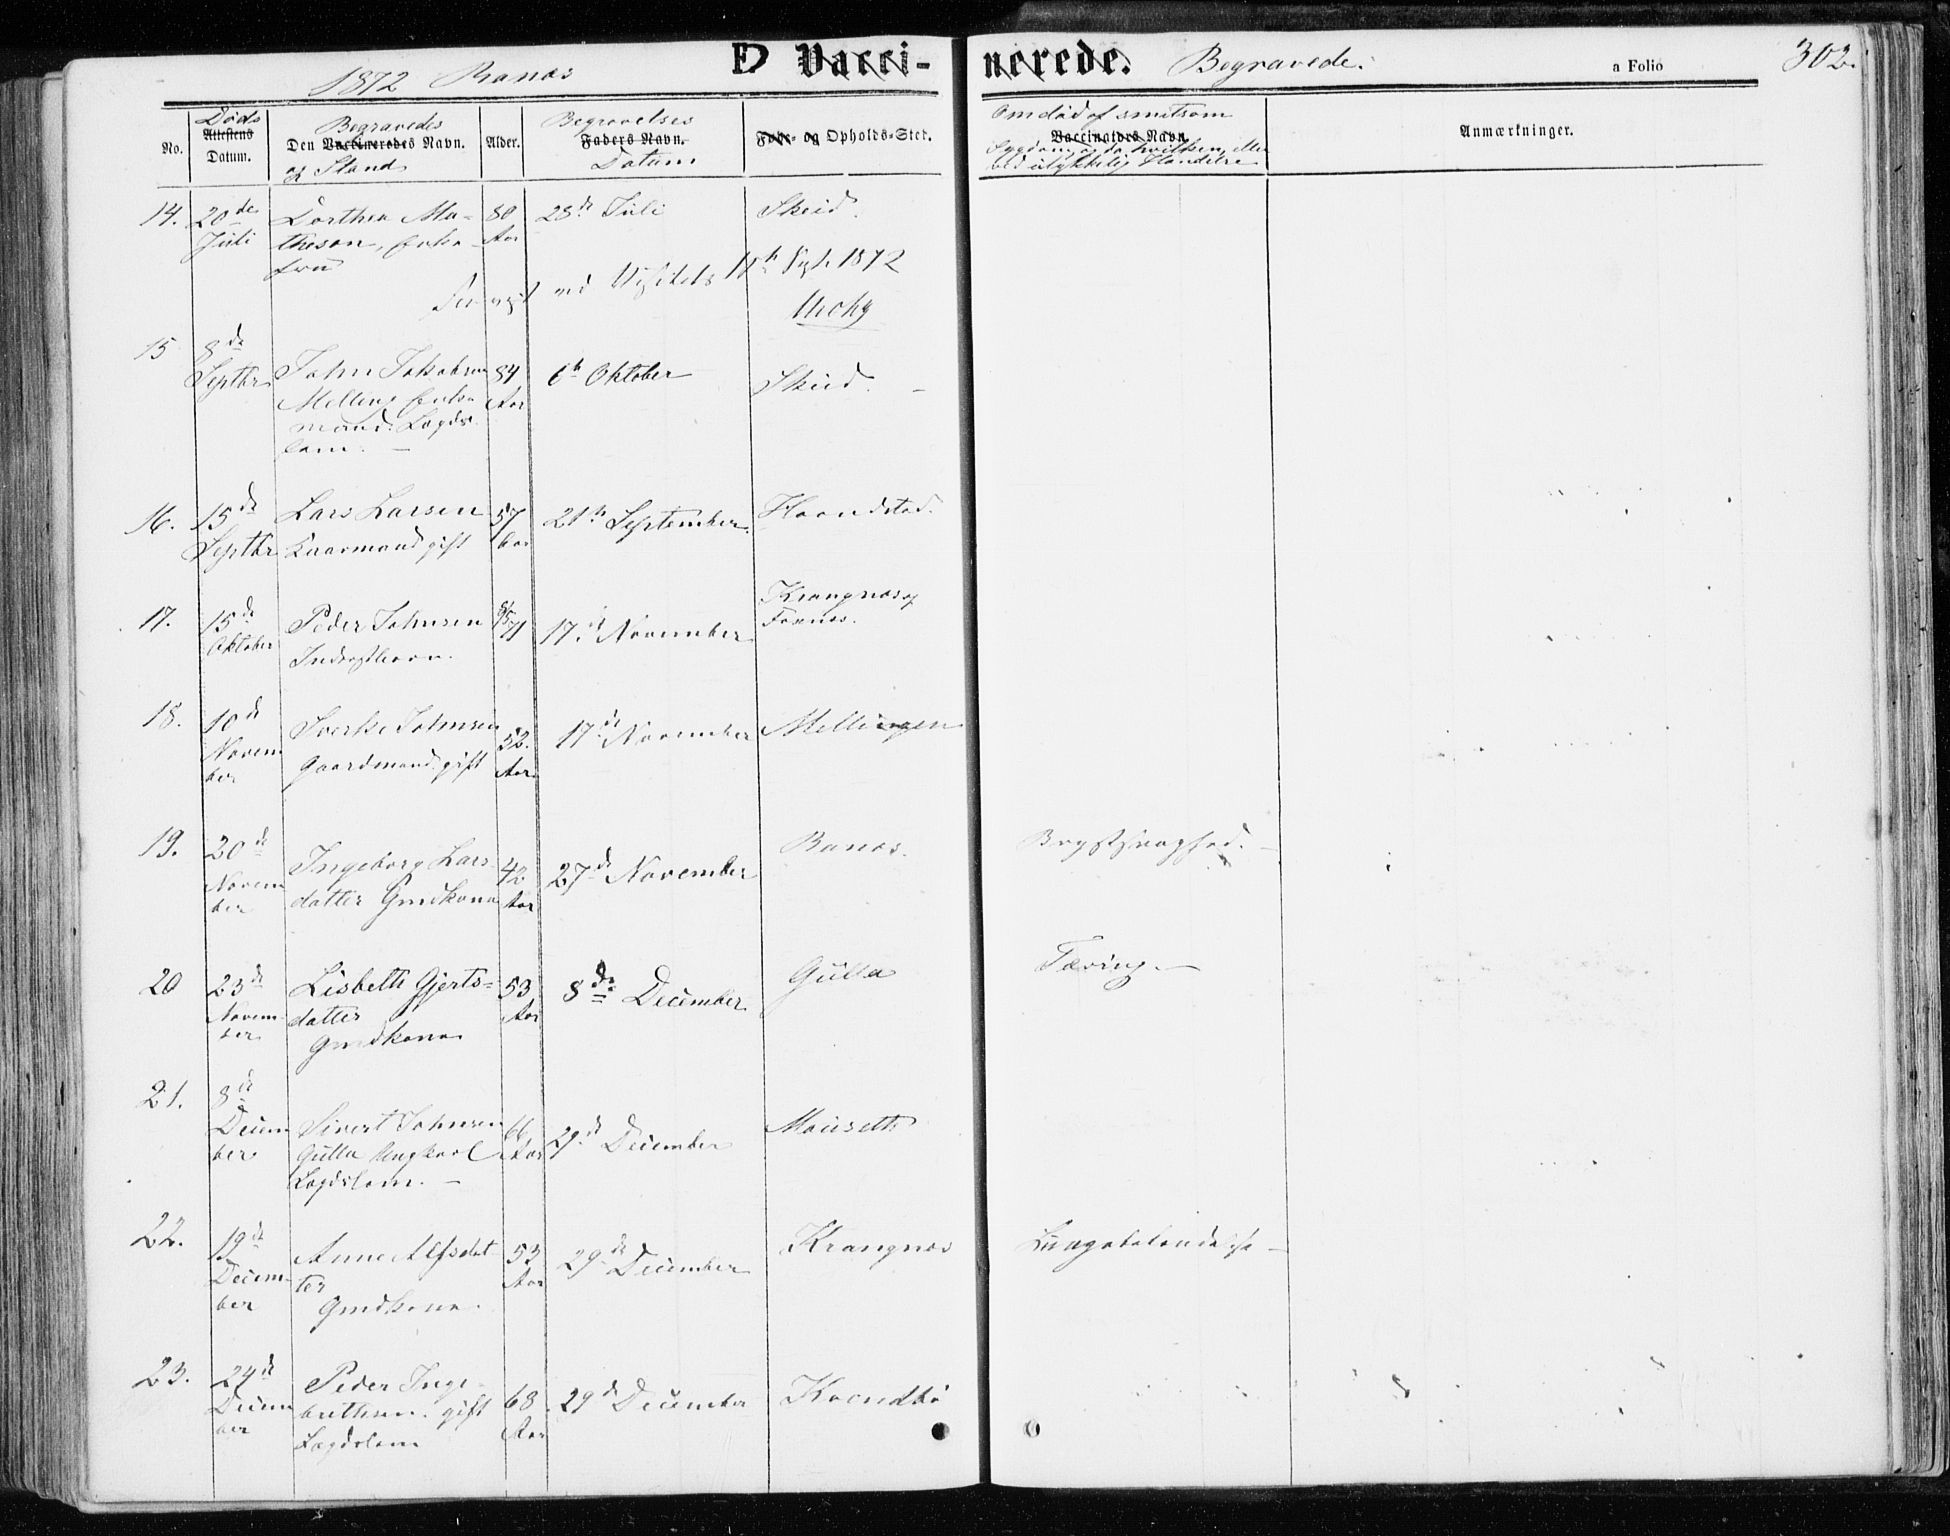 1872 Ranæs D Vacci- nerede. Begravede. a Folio 302.
No. Døds Attestens Datum. Begravedes Den Vaccineredes Navn. og Stand Alder. Begravelses Faders Navn. Datum Føde- og Opholds-Sted. Om død af smitsom Vaccinators Navn. Sygdom, og da hvilken, eller ved ulykkelig Hændelse Anmærkninger.
14. 20de Juli Dorthea Ma-
theson, enke-
frue 80 Aar 28de Juli Skeid.
ved Visitats 1872
15 8de Septbr John Jakobsen
Melling enke-
mand. Lægds-
lem. 84 Aar 6te Oktober Skeid.
16. 15de Septbr Lars Larsen
Kaarmand gift 57 Aar 21de September Haandstad.
17. 15de Oktober Peder Johnsen
71 17de November Krangnæs
18. 10de Novem
ber Sverke Johnsen
Gaardmand gift 52. Aar 17de November Mellingen
19. 20de Novem
ber Ingeborg Lars-
datter Gmdkona 42 Aar 27de November Ranæs. Brystsvaghed.
20 23de Novem-
ber Lisbeth Gjerts-
datter
Gmdkona 53 Aar 8de December Gulla Tæring.
21. 8de Decem
ber Sivert Johnsen
Gulla Ungkarl
Lægdslem. 66 Aar 29de December Mauseth
22. 19de Decem-
ber Anne Alfsdat-
ter
Gmdkona. 53 Aar 29de December Krangnæs Lungebetændelse
23. 24de Decem
ber Peder Inge-
brethsen. gift
Lægdslem 68. Aar 29de December Kvendbø